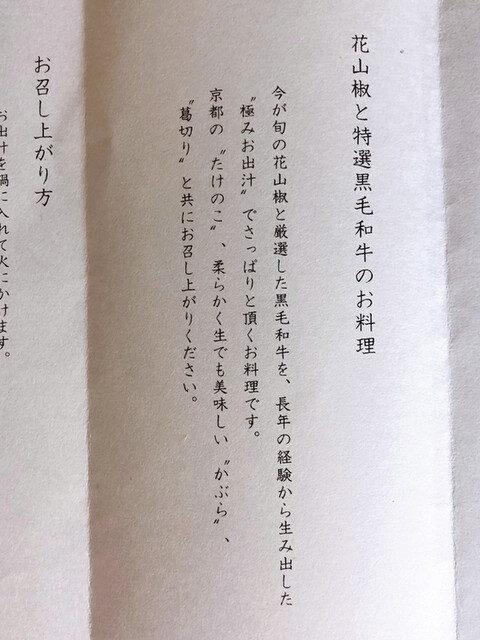 花山椒と特選黒毛和牛のお料理
今が旬の花山椒と厳選した黒毛和牛を、長年の経験から生み出した
〝極みお出汁〟でさっぱりと頂くお料理です。
京都の〝たけのこ〟、柔らかく生でも美味しい〝かぶら〟、
〝葛切り〟と共にお召し上がりください。
お召し上がり方
お出汁を鍋に入れて火にかけます。